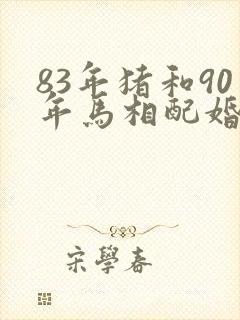 83年猪和90
年马相配婚
宋學春